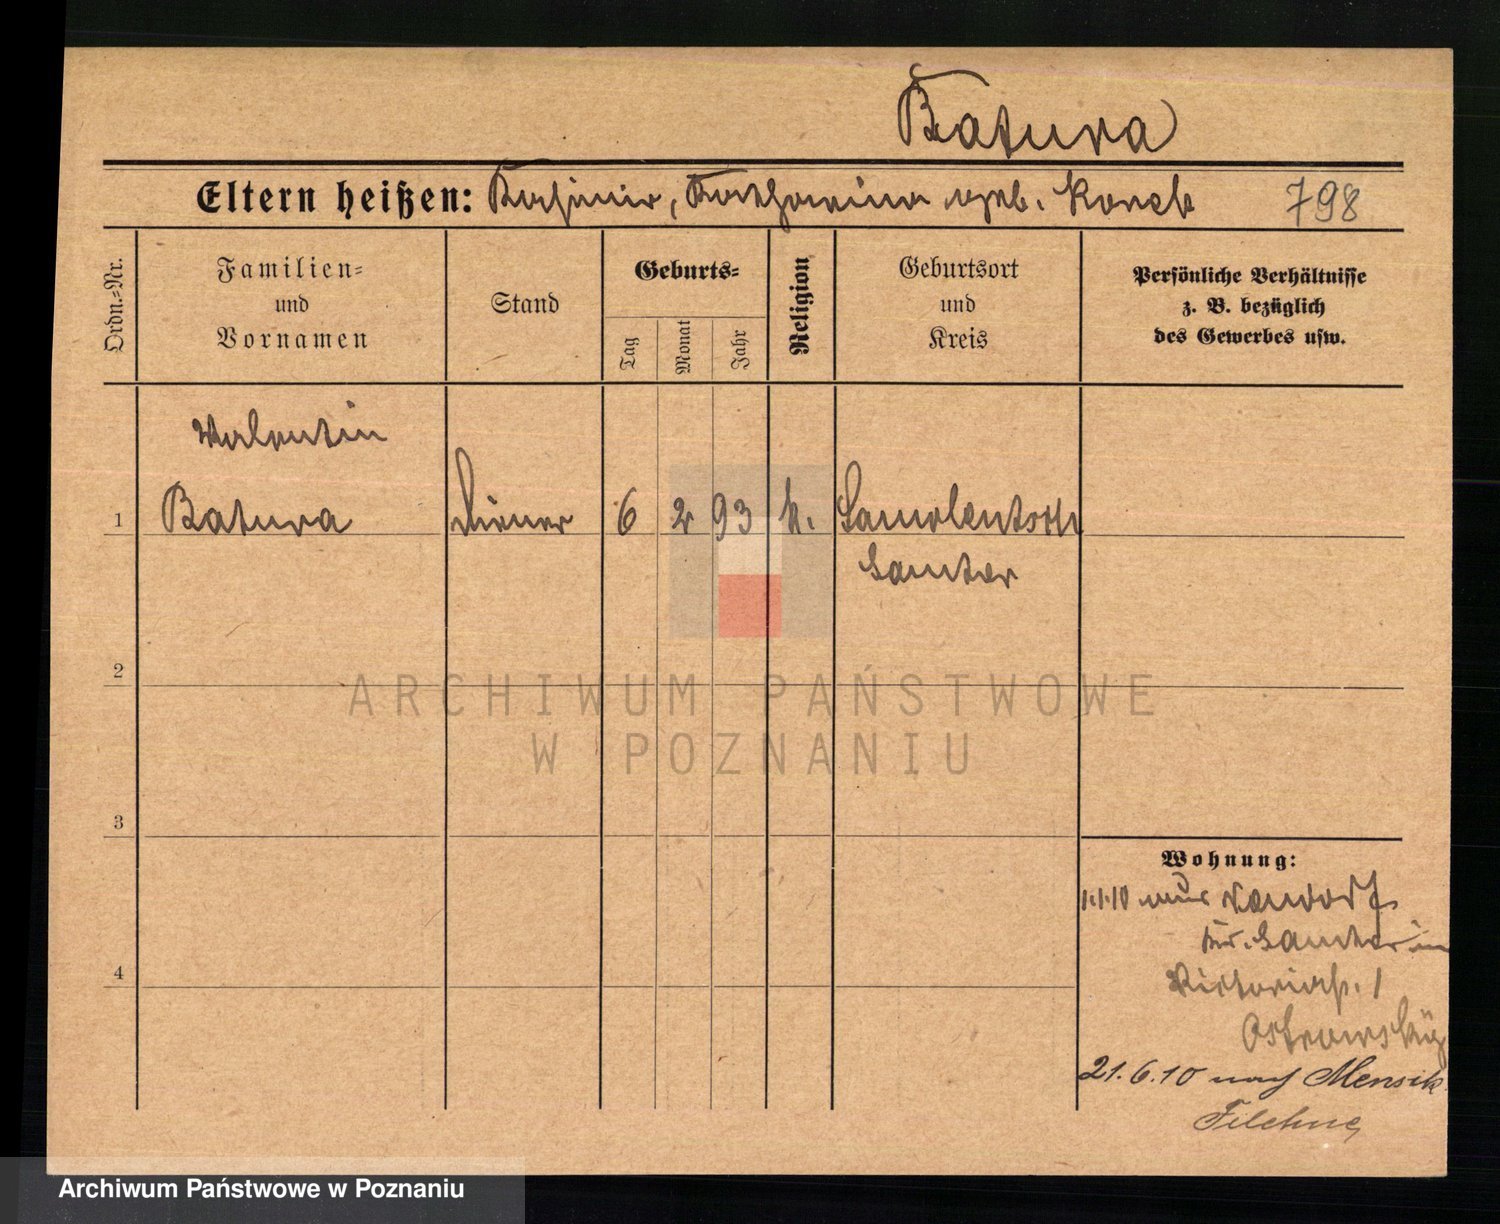 Batura
Eltern heißen: Kasimir, Katharina geb. Konek
798
Ordn.=Nr.
Familien=
und
Vornamen
Stand
Geburts=
Tag
Monat
Jahr
Religion
Geburtsort
und
Kreis
Persönliche Verhältnisse
z. B. bezüglich
des Gewerbes usw.
Valentin
1 Batura Diener 6 2 93 k.
Samter
2
3
4
Wohnung:
1.1.10
Kr. Samter in
Victoriastr. 1
21.6.10 nach Mensik
Filehne
ARCHIWUM PAŃSTWOWE
W POZNANIU
Archiwum Państwowe w Poznaniu